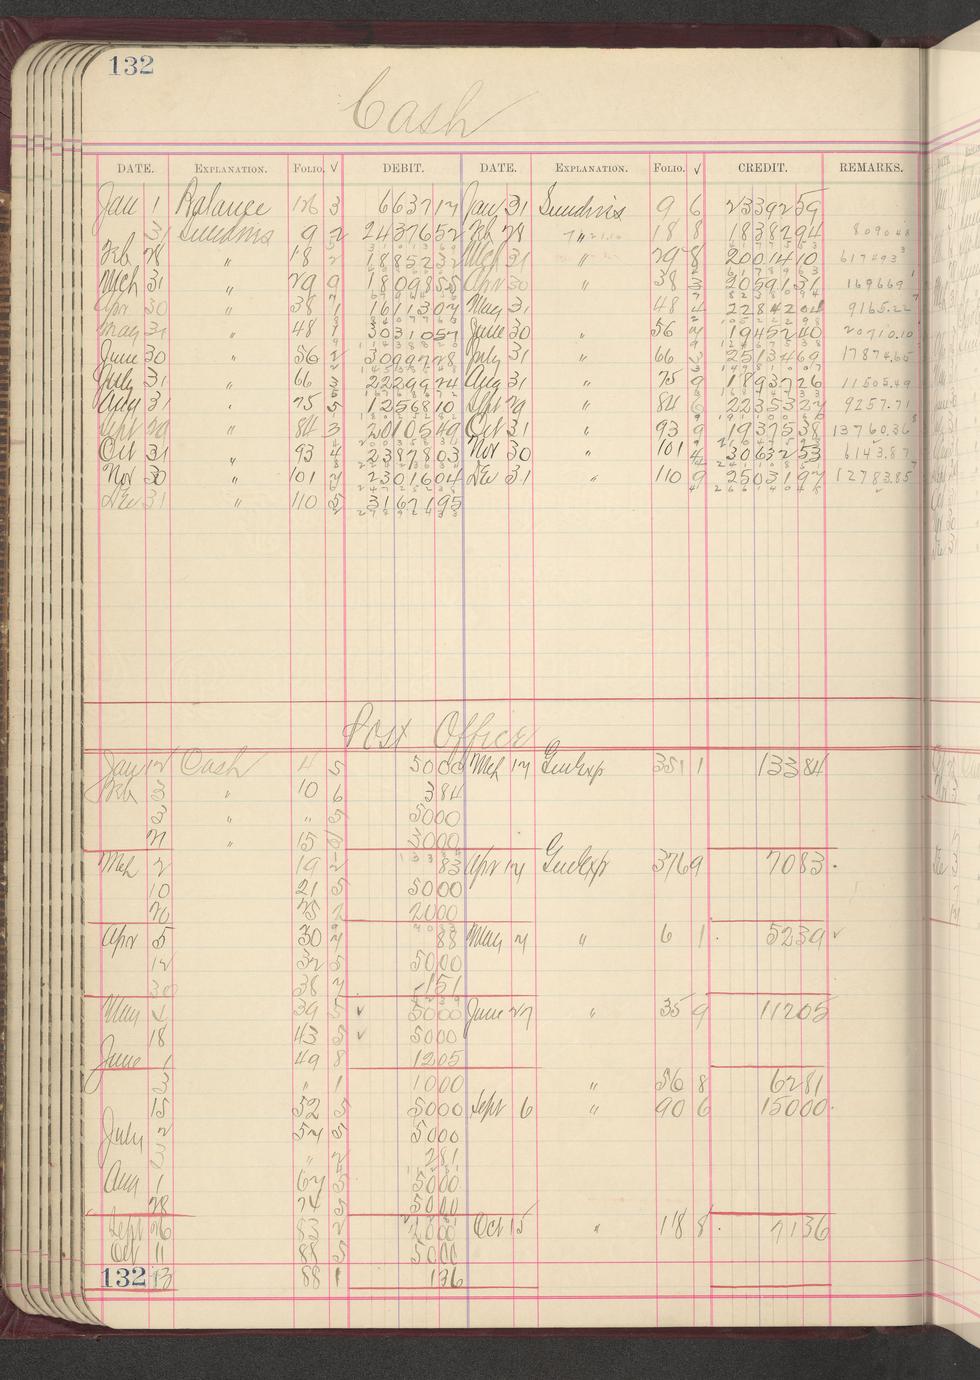 132
Cash
DATE. EXPLANATION. FOLIO. √ DEBIT. DATE. EXPLANATION. FOLIO. √ CREDIT. REMARKS.
Jan 1 Balance 126 3 663717 Jan 31 Sundries 9 6 2339259
31 Sundries 9 2 2437652 Feb 28 " 18 8 1838294 809048
Feb 28 " 18 2 1885232 Mch 31 " 29 8 2001410 617493
Mch 31 " 29 9 1809855 Apr 30 " 38 3 2059131 169669
Apr 30 " 38 1 1611307 May 31 " 48 4 2284204 9165.22
May 31 " 48 1 3031057 June 30 " 56 7 1945240 20710.10
June 30 " 56 2 3099728 July 31 " 66 3 2513469 17874.65
July 31 " 66 3 2229924 Aug 31 " 75 9 1893726 11505.49
Aug 31 " 75 5 1256810 Sept 29 " 84 6 2235327 9257.71
Sept 29 " 84 3 2010549 Oct 31 " 93 9 1937538 13760.36
Oct 31 " 93 4 2387803 Nov 30 " 101 4 3063253 6143.87
Nov 30 " 101 7 2301604 Dec 31 " 110 9 2503197 12783.85
Dec 31 " 110 5 3167195
Post Office
Jan 12 Cash 4 5 5000 Mch 17 Gen Exp 351 1 13384
Feb 3 " 10 6 384
3 " " 5 5000
21 " 15 3000
Mch 2 19 2 83 Apr 17 Gen Exp 376 9 7083
10 21 5 5000
20 25 2 2000
Apr 5 30 7 88 May 7 " 6 1 5239 √
12 32 5 5000
30 38 7 151
May 4 39 5 √ 5000 June 27 " 35 9 11205
18 43 5 √ 5000
June 1 49 8 1205
3 " 1 1000 " 56 8 6281
15 52 5 5000 Sept 6 " 90 6 15000
July 2 57 5 5000
3 " 2 281
Aug 1 67 5 5000
28 74 5 5000
Sept 26 83 2 2000 Oct 15 " 118 8 7136
Oct 11 88 5 5000
132 13 88 1 136